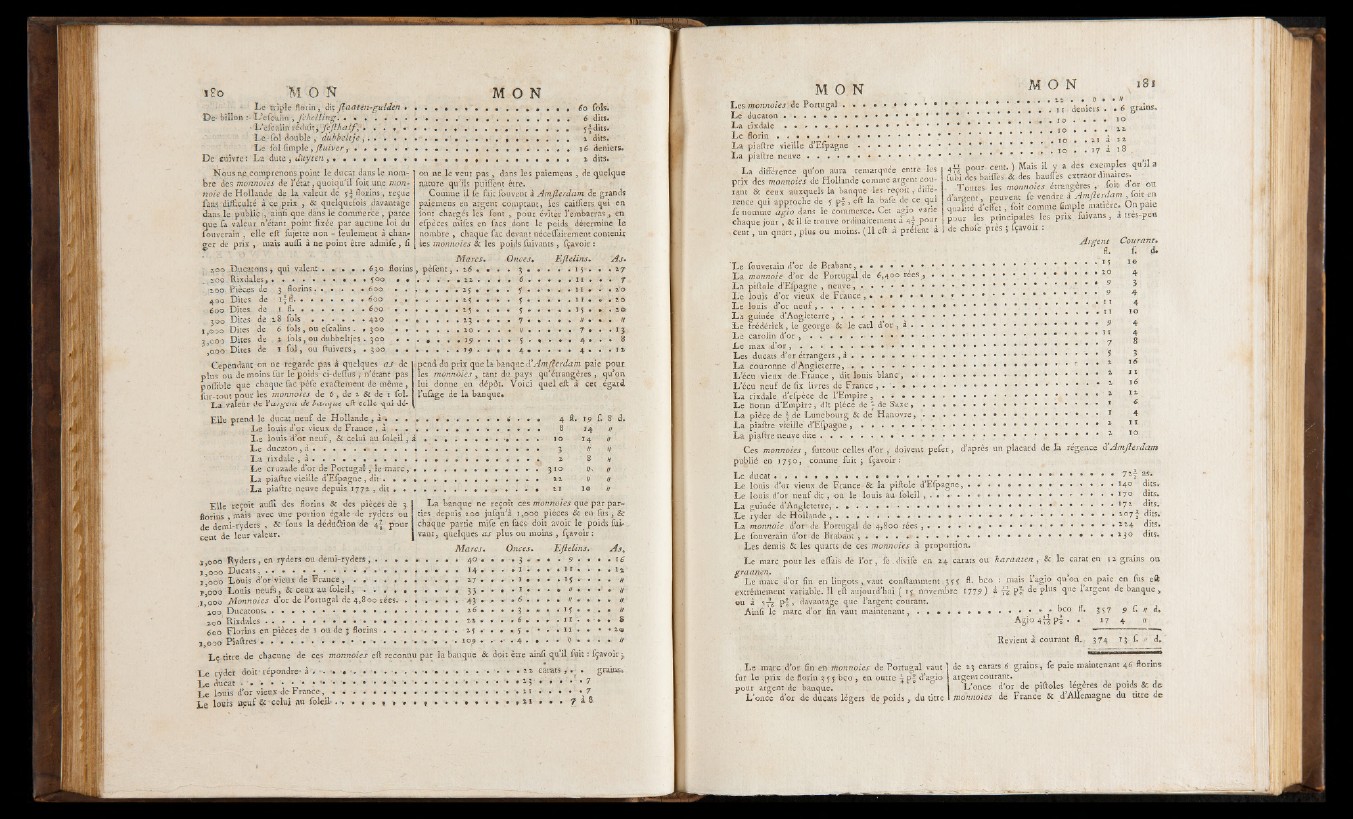 180 M O N M O N
Le triple florin, dit ſtaaten-gulden . . . . . . . . . . . . 60 ſols.
De billon : L'eſcalin, ſchelling . . . . . . . . . . . . 6 dits.
L'eſcalin réduit, ſeſthalf . . . . . . . . . . . . 5½ dits.
Le ſol double, dubbeltje, . . . . . . . . . . . . 2 dits.
Le ſol ſimple, ſtuiver, . . . . . . . . . . . . 16 deniers.
De cuivre : La dute, duyten, . . . . . . . . . . . . 2 dits.
Nous ne comprenons point le ducat dans le nom-
bre des monnoies de l'état, quoiqu'il ſoit une mon-
noie de Hollande de la valeur de 5¼ florins, reçue
ſans difficulté à ce prix, & quelquefois davantage
dans le public, ainſi que dans le commerce, parce
que ſa valeur n'étant point fixée par aucune loi du
ſouverain, elle eſt ſujette non-ſeulement à chan-
ger de prix, mais auſſi à ne point être admiſe, ſi
on ne le veut pas, dans les paiemens, de quelque
nature qu'ils puiſſent être.
Comme il ſe fait ſouvent à Amſterdam de grands
paiemens en argent comptant, les caiſſiers qui en
ſont chargés les font, pour éviter l'embarras, en
eſpèces miſes en ſacs dont le poids détermine le
nombre, chaque ſac devant néceſſairement contenir
les monnoies & les poids ſuivants, ſçavoir :
Marcs. Onces. Eſtelins. As.
200 Ducatons, qui valent . . . . . 630 florins, péſent, . 26 . . . . 3 . . . . 15 . . . . 27
200 Rixdales, . . . . . . . 500 . . . . . . 22 . . . . 6 . . . . 11 . . . . 7
200 Pièces de 3 florins . . . . . 600 . . . . . . 25 . . . . 5 . . . . 11 . . . . 20
400 Dites de 1½ fl. . . . . . . 600 . . . . . . 25 . . . . 5 . . . . 11 . . . . 20
600 Dites de 1 fl. . . . . . . 600 . . . . . . 25 . . . . 5 . . . . 15 . . . . 20
300 Dites de 28 ſols . . . . . 420 . . . . . . 23 . . . . 7 . . . . // . . . . //
1,000 Dites de 6 ſols, ou eſcalins . . 300 . . . . . . 20 . . . . // . . . . 7 . . . . 13
3,000 Dites de 2 ſols, ou dubbeltjes . 300 . . . . . . 19 . . . . 5 . . . . 4 . . . . 8
,000 Dites de 1 ſol, ou ſtuivers, . 300 . . . . . . 19 . . . . 4 . . . . 4 . . . . 12
Cependant on ne regarde pas à quelques as de
plus ou de moins ſur le poids ci-deſſus, n'étant pas
poſſible que chaque ſac pèſe exactement de même,
ſur-tout pour les monnoies de 6, de 2 & de 1 ſol.
La valeur de l'argent de banque eſt celle qui dé-
pend du prix que la banque d'Amſterdam paie pour
les monnoies, tant du pays qu'étrangères, qu'on
lui donne en dépôt. Voici quel eſt à cet égard
l'uſage de la banque.
Elle prend le ducat neuf de Hollande, à . . . . . . . 4 fl. 19 ſ. 8 d.
Le louis d'or vieux de France, à . . . . . . . 8 14 //
Le louis d'or neuf, & celui au ſoleil, à . . . . . . . 10 14 //
Le ducaton, à . . . . . . . 3 // //
La rixdale, à . . . . . . . 2 8 //
Le cruzade d'or de Portugal, le marc, . . . . . . . 310 // //
La piaſtre vieille d'Eſpagne, dit . . . . . . . 22 // //
La piaſtre neuve depuis 1772, dit . . . . . . . 21 10 //
Elle reçoit auſſi des florins & des pièces de 3
florins, mais avec une portion égale de ryders ou
de demi-ryders, & ſous la déduction de 4¼ pour
cent de leur valeur.
La banque ne reçoit ces monnoies que par par-
ties depuis 200 juſqu'à 1,000 pièces & en ſus, &
chaque partie miſe en ſacs doit avoir le poids ſui-
vant, quelques as plus ou moins, ſçavoir :
Marcs. Onces. Eſtelins. As.
1,000 Ryders, en ryders ou demi-ryders, . . . . . . 40 . . . . 3 . . . . 9 . . . . 16
1,000 Ducats, . . . . . . 14 . . . . 1 . . . . 11 . . . . 12
1,000 Louis d'or vieux de France, . . . . . . 27 . . . . 1 . . . . 15 . . . . //
1,000 Louis neufs, & ceux au ſoleil, . . . . . . 33 . . . . 1 . . . . // . . . . //
1,000 Monnoies d'or de Portugal de 4,800 rées. . . . . . . 43 . . . . 6 . . . . // . . . . //
200 Ducatons. . . . . . . 26 . . . . 3 . . . . 15 . . . . //
200 Rixdales . . . . . . 22 . . . . 6 . . . . 11 . . . . 8
600 Florins en pièces de 1 ou de 3 florins . . . . . . 25 . . . . 5 . . . . 11 . . . . 20
2,000 Piaſtres . . . . . . 109 . . . . 4 . . . . // . . . . //
Le titre de chacune de ces monnoies eſt reconnu par la banque & doit être ainſi qu'il ſuit : ſçavoir ;
Le ryder doit répondre à . . . . . . . 22 carats, . . grains.
Le ducat . . . . . . . 23 . . . . . 7
Le louis d'or vieux de France, . . . . . . . 21 . . . . . 7
Le louis neuf & celui au ſoleil . . . . . . . 21 . . . . 7 à 8
M O N M O N 181
Les monnoies de Portugal . . . . . . . 22 . . // . . //
Le ducaton . . . . . . . 11 deniers . . 6 grains.
La rixdale . . . . . . . 10 . . . . 10
Le florin . . . . . . . 10 . . . . 22
La piaſtre vieille d'Eſpagne . . . . . . . 10 . . 21 à 22
La piaſtre neuve . . . . . . . 10 . . 17 à 18
La différence qu'on aura remarquée entre les
prix des monnoies de Hollande comme argent cou-
rant & ceux auxquels la banque les reçoit, diffé-
rence qui approche de 5 p°⁄₀, eſt la baſe de ce qui
ſe nomme agio dans le commerce. Cet agio varie
chaque jour, & il ſe trouve ordinairement à 4¾ pour
cent, un quart, plus ou moins. (Il eſt à préſent à
pour cent.) Mais il y a des exemples qu'il a
ſubi des baiſſes & des hauſſes extraordinaires.
Toutes les monnoies étrangères, ſoit d'or ou
d'argent, peuvent ſe vendre à Amſterdam, ſoit en
qualité d'effet, ſoit comme ſimple matière. On paie
pour les principales les prix ſuivans, à très-peu
de choſe près ; ſçavoir :
Argent Courant.
fl. ſ. d.
Le ſouverain d'or de Brabant, . . . . . . . 15 10
La monnoie d'or de Portugal de 6,400 rées, . . . . . . . 20 4
La piſtole d'Eſpagne, neuve, . . . . . . . 9 3
Le louis d'or vieux de France, . . . . . . . 9 4
Le louis d'or neuf, . . . . . . . 11 4
La guinée d'Angleterre, . . . . . . . 11 10
Le frédérick, le george & le carl d'or, à . . . . . . . 9 4
Le carolin d'or, . . . . . . . 11 4
Le max d'or, . . . . . . . 7 8
Les ducats d'or étrangers, à . . . . . . . 5 3
La couronne d'Angleterre, . . . . . . . 2 16
L'écu vieux de France, dit louis blanc, . . . . . . . 2 11
L'écu neuf de ſix livres de France, . . . . . . . 2 16
La rixdale d'eſpèce de l'Empire, . . . . . . . 2 12
Le florin d'Empire, dit pièce de ⅔ de Saxe, . . . . . . . 1 6
La pièce de ⅔ de Lunebourg & de Hanovre, . . . . . . . 1 4
La piaſtre vieille d'Eſpagne, . . . . . . . 2 11
La piaſtre neuve dite . . . . . . . 2 10
Ces monnoies, ſurtout celles d'or, doivent peſer, d'après un placard de la régence d'Amſterdam
publié en 1750, comme ſuit ; ſçavoir :
Le ducat . . . . . . . 72½ as.
Le louis d'or vieux de France & la piſtole d'Eſpagne, . . . . . . . 140 dits.
Le louis d'or neuf dit, ou le louis au ſoleil, . . . . . . . 170 dits.
La guinée d'Angleterre, . . . . . . . 172 dits.
Le ryder de Hollande, . . . . . . . 207½ dits.
La monnoie d'or de Portugal de 4,800 rées, . . . . . . . 224 dits.
Le ſouverain d'or de Brabant, . . . . . . . 230 dits.
Les demis & les quarts de ces monnoies à proportion.
Le marc pour les eſſais de l'or, ſe diviſe en 24 carats ou karaaten, & le carat en 12 grains ou
graanen.
Le marc d'or fin en lingots, vaut conſtamment 355 fl. bco : mais l'agio qu'on en paie en ſus eſt
extrêmement variable. Il eſt aujourd'hui (15 novembre 1779) à p°⁄₀ de plus que l'argent de banque,
ou à p°⁄₀, davantage que l'argent courant.
Ainſi le marc d'or fin vaut maintenant, . . . . . . . bco fl. 357 9 ſ. // d.
Agio p°⁄₀ . . 17 4 //
Revient à courant fl. 374 13 ſ. // d.
Le marc d'or fin en monnoies de Portugal vaut
ſur le prix de florin 355 bco, en outre p°⁄₀ d'agio
pour argent de banque.
L'once d'or de ducats légers de poids, du titre
de 23 carats 6 grains, ſe paie maintenant 46 florins
argent courant.
L'once d'or de piſtoles légères de poids & de
monnoies de France & d'Allemagne du titre de